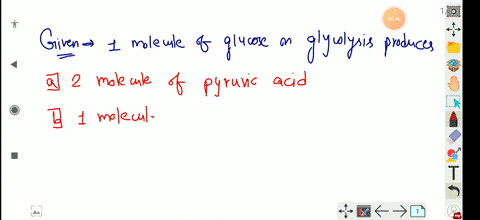 Given → 1 molecule of glucose on glycolysis produces
a 2 molecule of pyruvic acid
b 1 molecul